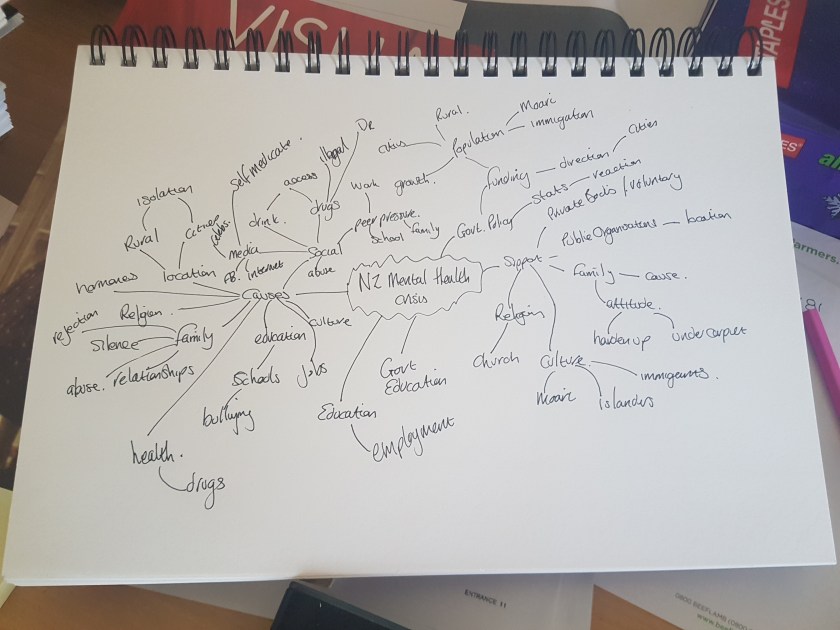 VISM
STAPLES
Rural.
Moari
immigation
cities
Population
Dr
illegal
self medicate.
access
work
growth.
funding
direction
cities
reaction
stats
isolation
drink.
drugs
peer pressure.
School
family
Govt. Policy
Private Bodis / Voluntary
Public Organisations
location
Rural
Cities
media
Social
FB.
internet
abuse
Support
family
cause.
hormones
location
Causes
NZ Mental Health
crisis
attitude.
harden up
under carpet
rejection
Religion.
Silence
family
education
culture
Religion
abuse.
relationships
Schools
jobs
Govt
Education
Church
Culture.
immigrants.
Moari
islanders
bullying
Education
employment
health.
drugs
farmers.
ENTRANCE 11